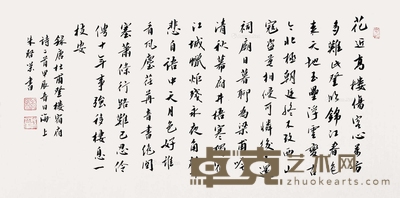 花近高樓傷客心萬方
多難此登臨錦江春色
來天地玉壘浮雲變古
今北極朝廷終不改西山
寇盜莫相侵可憐後主還
祠廟日暮聊為梁甫吟
清秋幕府井梧寒獨宿
江城蠟炬殘永夜角聲
悲自語中天月色好誰
看風塵荏苒音書絕關
塞蕭條行路難已忍伶
俜十年事強移棲息一
枝安
錄唐杜甫登樓宿府
詩二首甲辰春日海上
朱書
卓克艺术网
zhuokearts.com